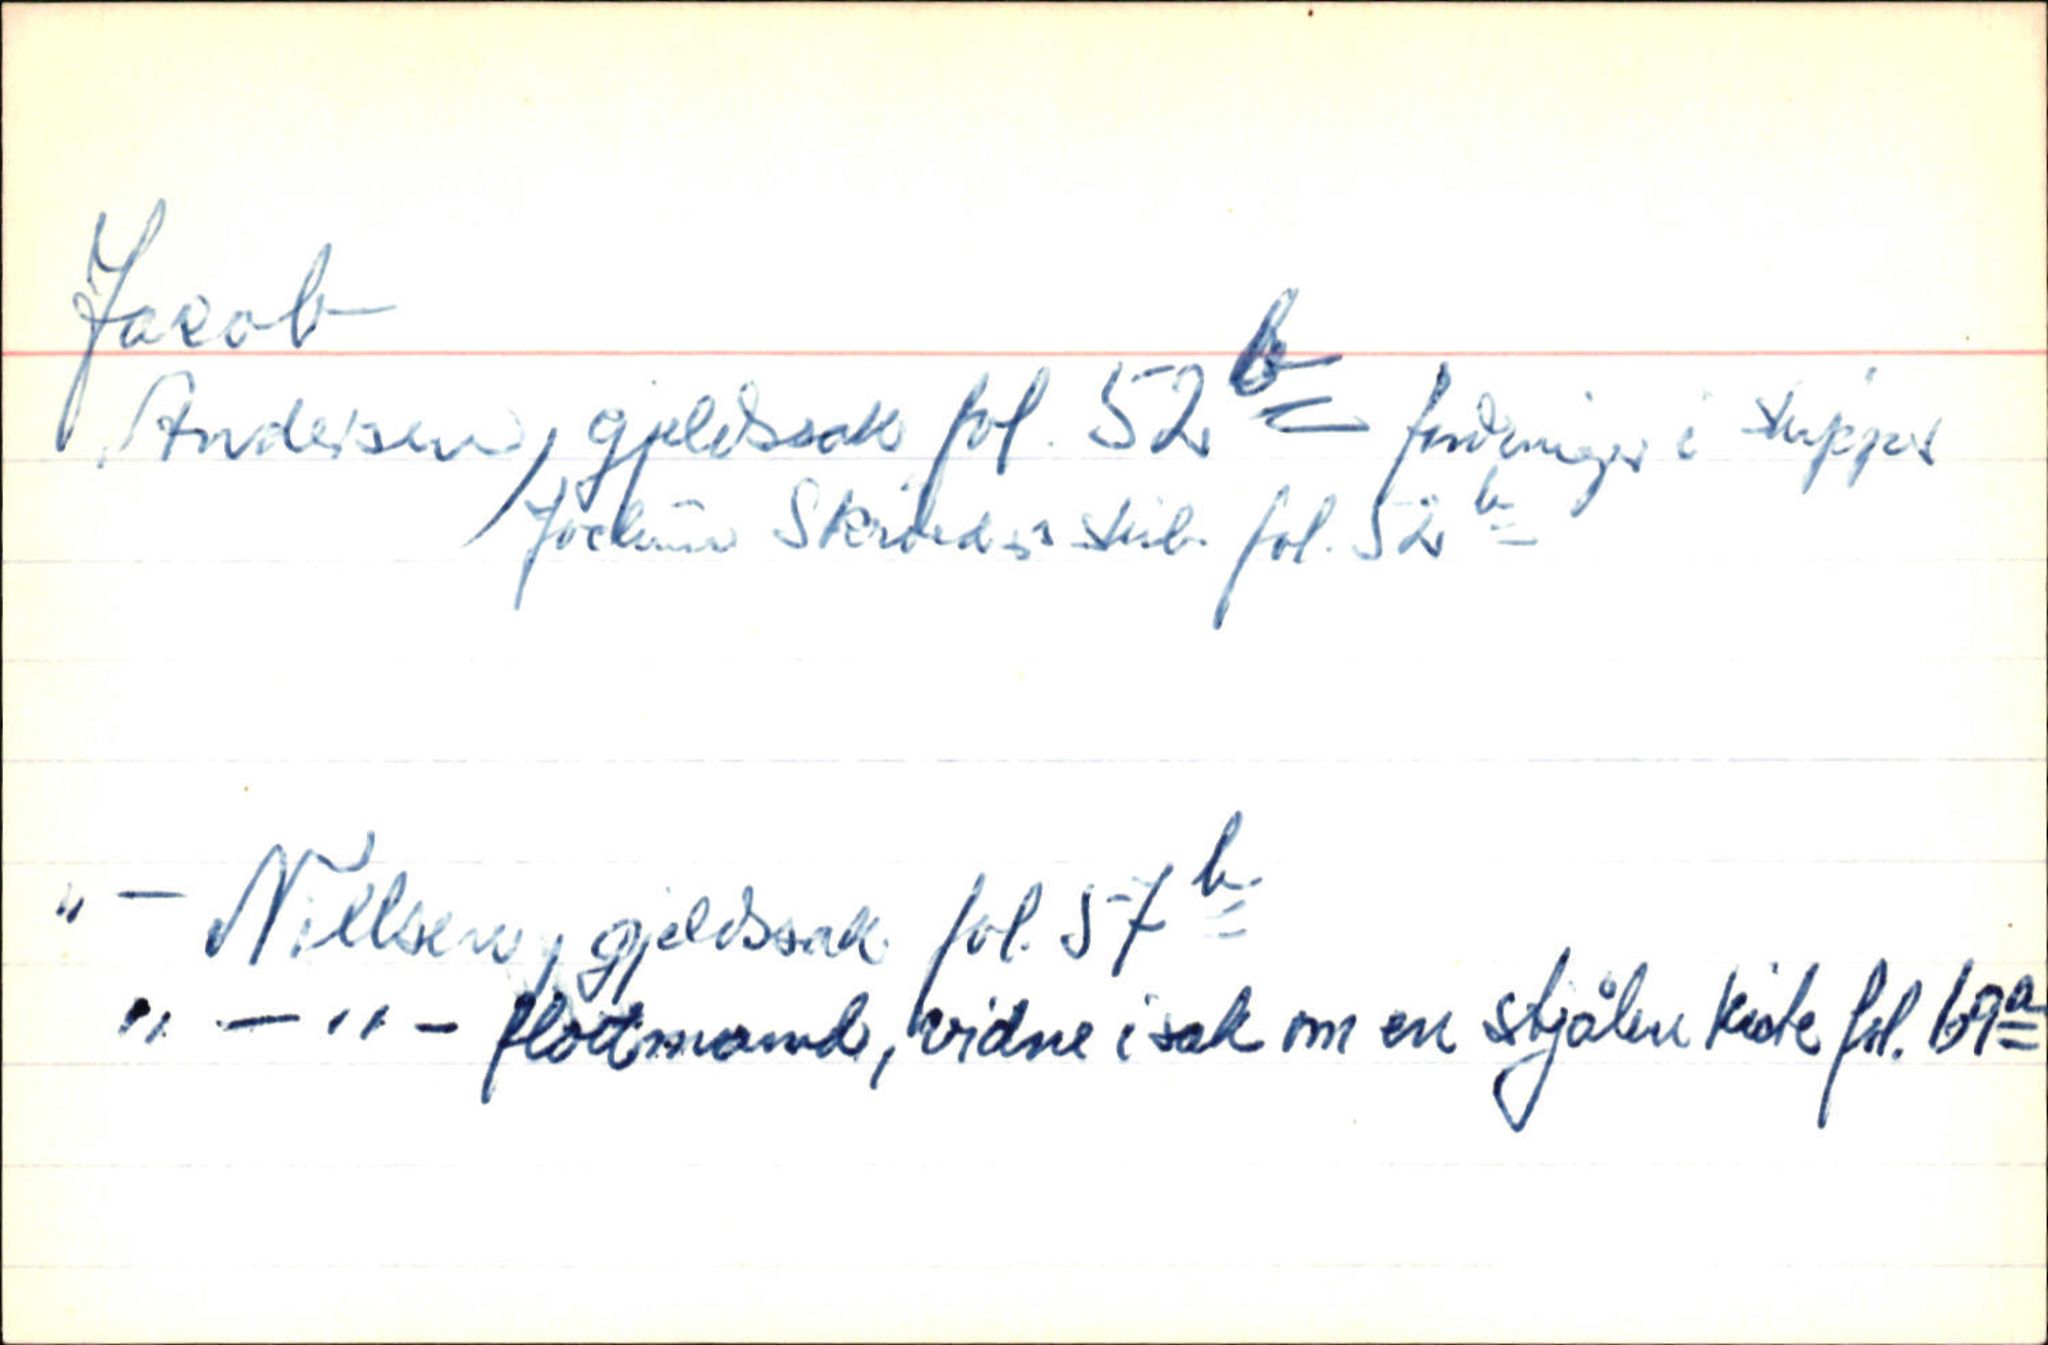 Jacob
Andersen, gjeldssak fol. 52 b fordringer i skipper
Jochum Skrøders stib. fol. 52 b
" — Nillsen, gjeldssak fol. 57 b
" — " — flottmand, vidne i sak om en stjålen kiste fol. 69 a